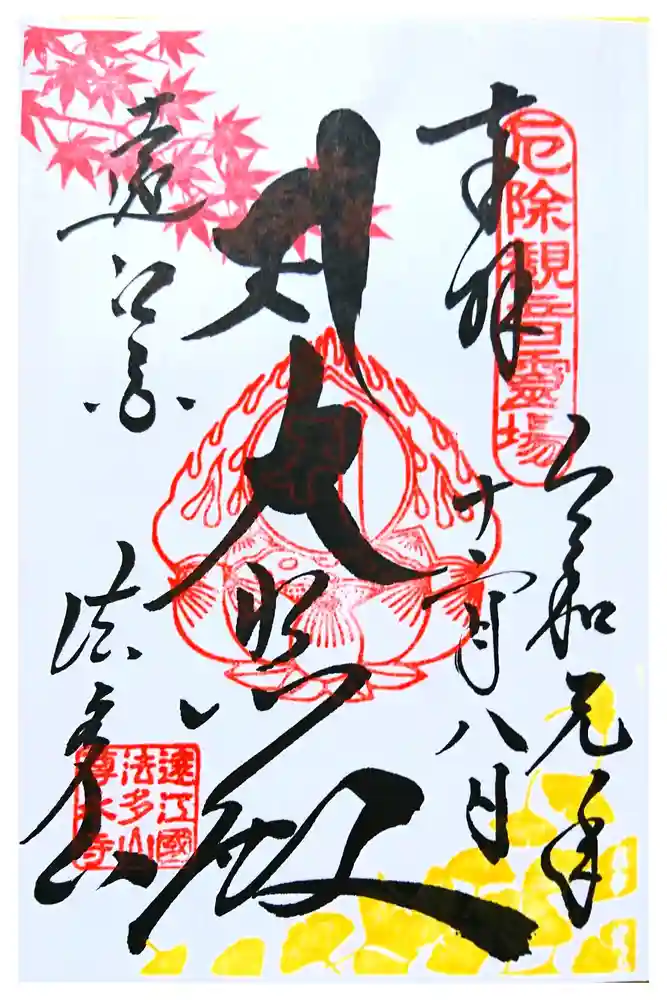 奉拝
厄除觀音霊場
令和元年
八日
大照殿
遠江
法多山
遠江國
法多山
尊永寺